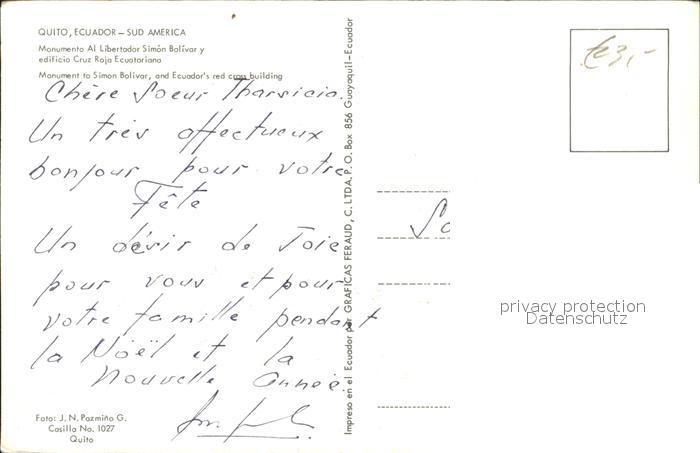 QUITO, ECUADOR — SUD AMERICA
Monumento Al Libertador Simón Bolívar y
edificio Cruz Roja Ecuatoriana
Monument to Simon Bolivar, and Ecuador's red cross building
Chère Soeur Tharsicia.
Un très affectueux
bonjour pour votre
Fête
Un désir de Joie
pour vous et pour
votre famille pendant
la Nöel et la
nouvelle année.
Foto: J. N. Pazmiño G.
Casilla No. 1027
Quito
Impreso en el Ecuador por GRAFICAS FERAUD, C. LTDA, P. O. Box 856 Guayaquil-Ecuador
€3,-
So
privacy protection
Datenschutz